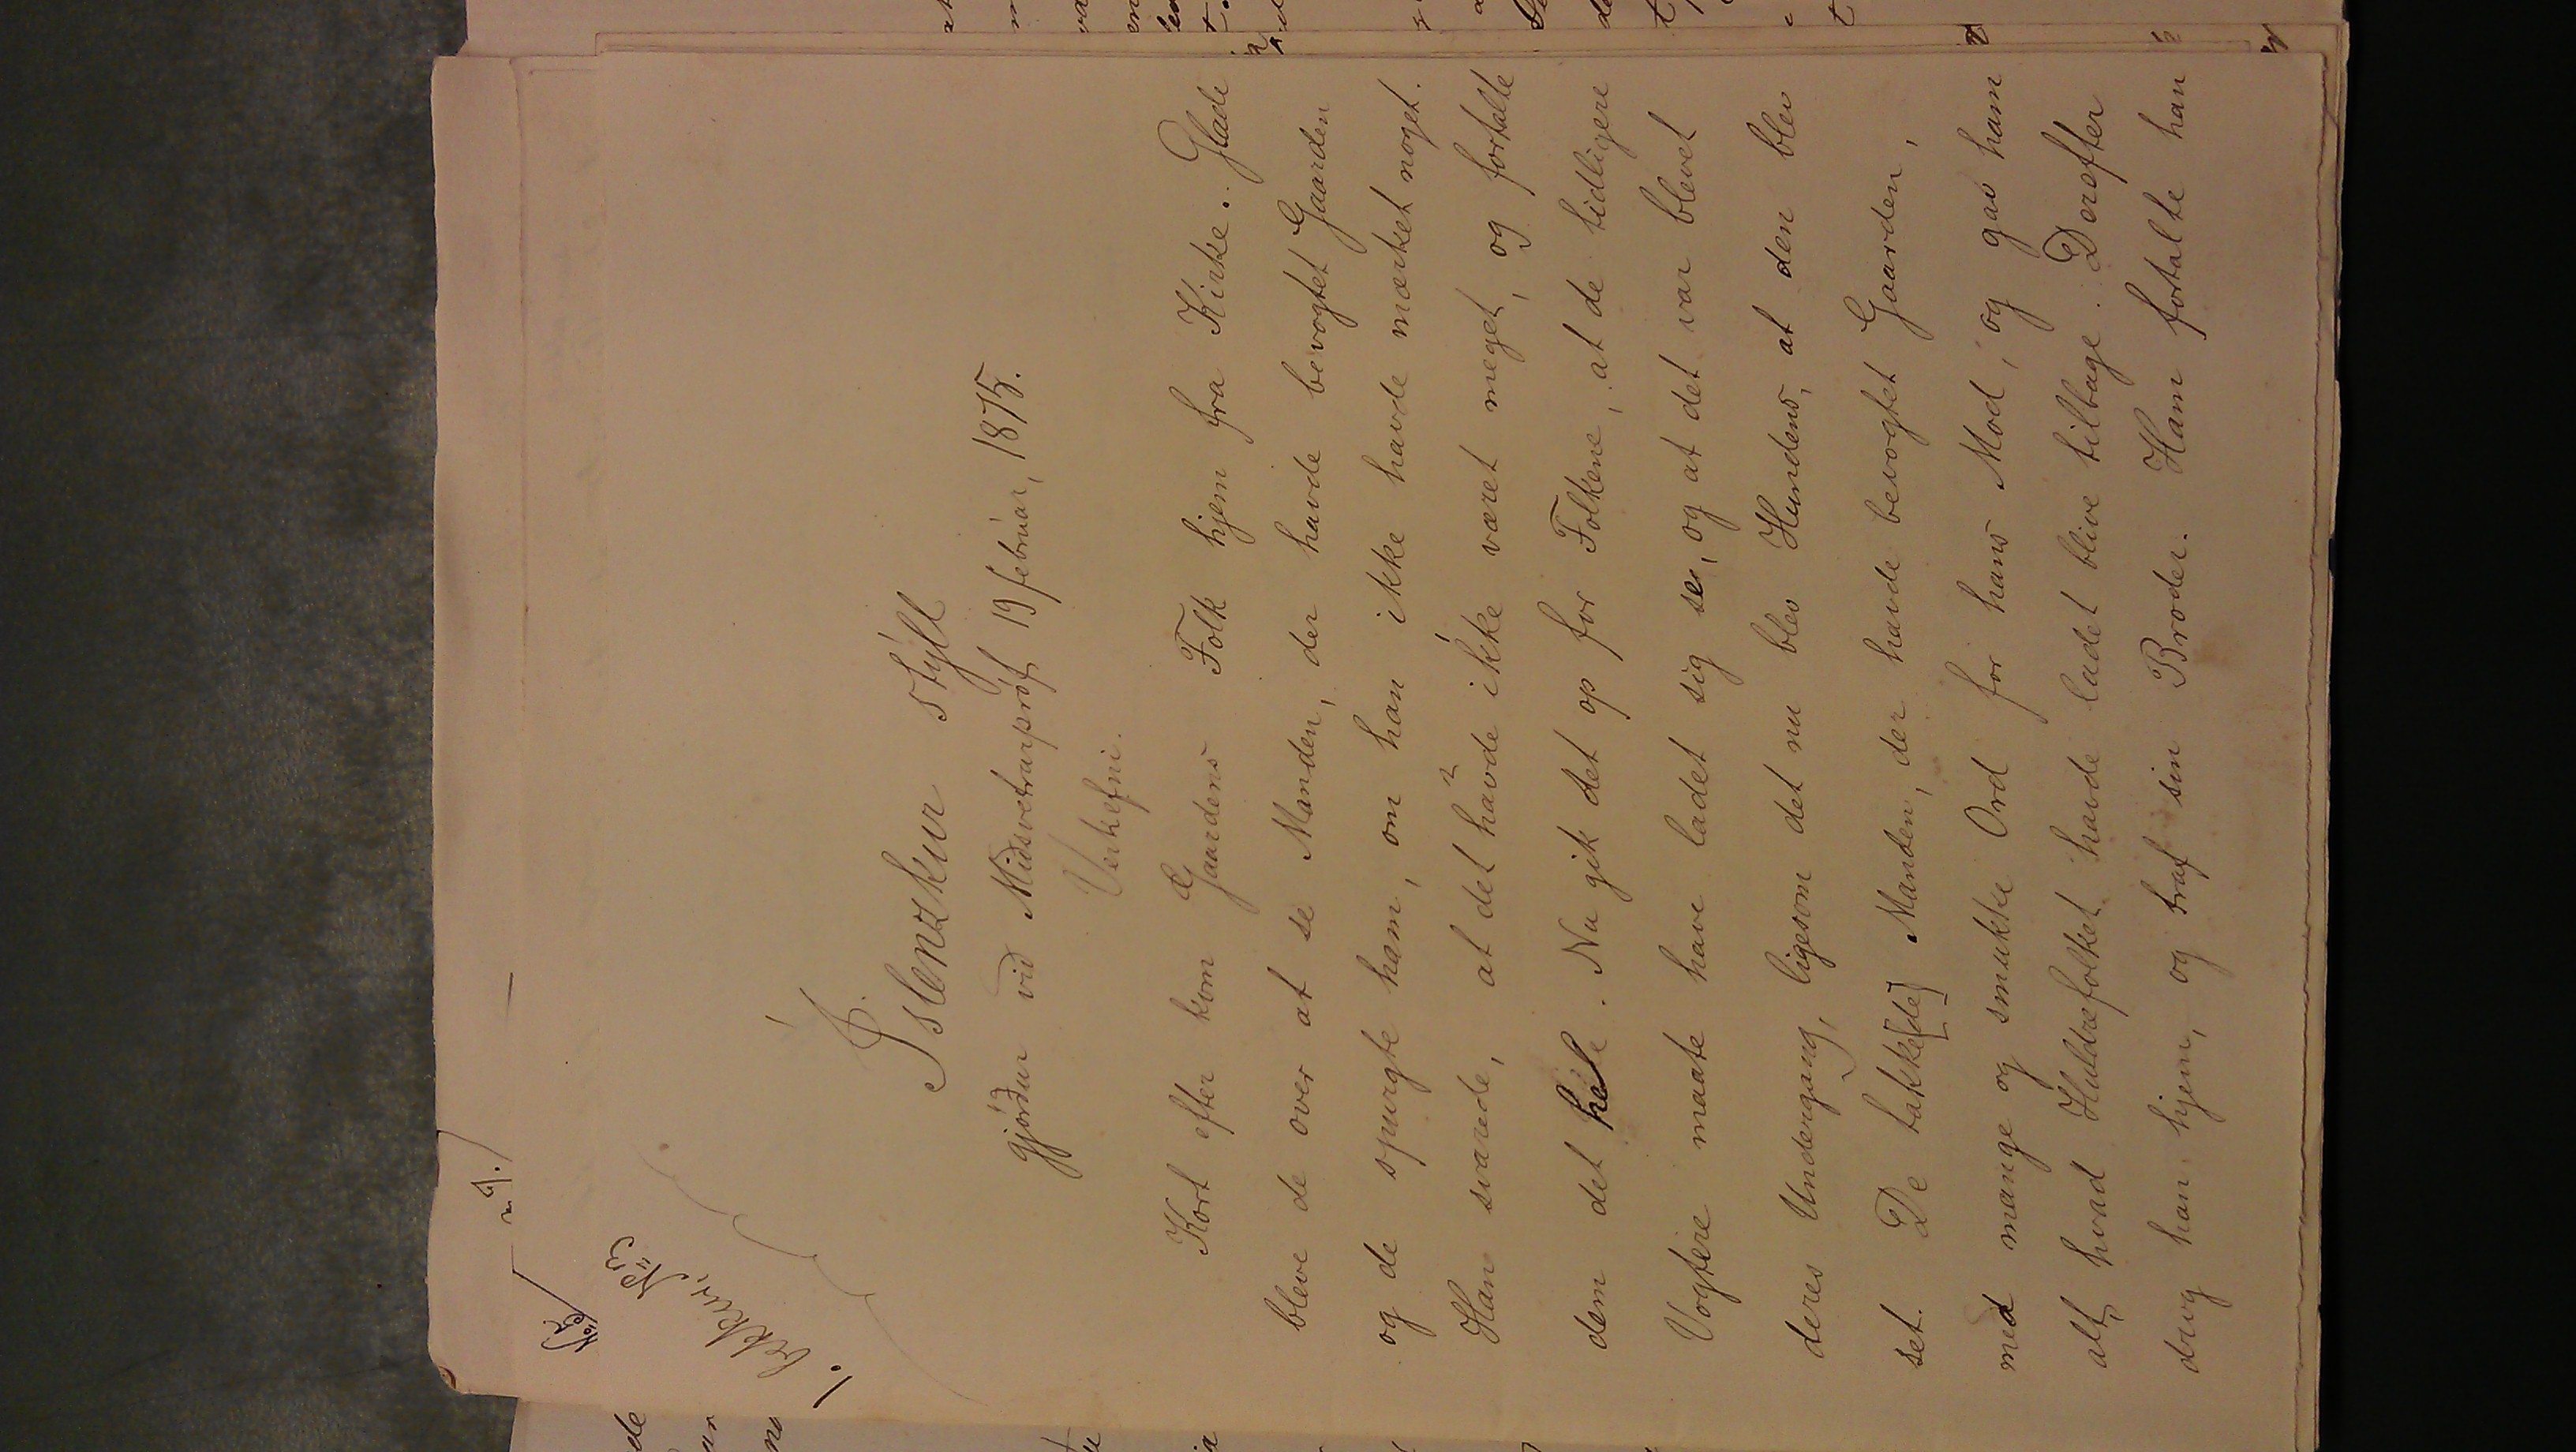 1. bekkur, No 3
Íslenzkur stýll
gjörður við Miðsvetrarpróf 19 febrúar, 1875.
Verkefni.
Kort efter kom Gaardens Folk hjem fra Kirke. Glade
bleve de over at se Manden, der havde bevogtet Gaarden
og de spurgte ham, om han ikke havde mærket noget.
Han svarede, at det havde ikke været meget, og fortalte
dem det hele. Nu gik det op for Folkene, at de tidligere
Vogtere maate have ladet sig se, og at det var blevet
deres Undergang, ligesom det nu blev Hundens, at den blev
set. De takke[de] Manden, der havde bevogtet Gaarden,
med mange og smukke Ord for hans Mod, og gav ham
alt, hvad Huldrefolket havde ladet blive tilbage. Derefter
drog han hjem, og traf sin Broder. Ham fortalte han